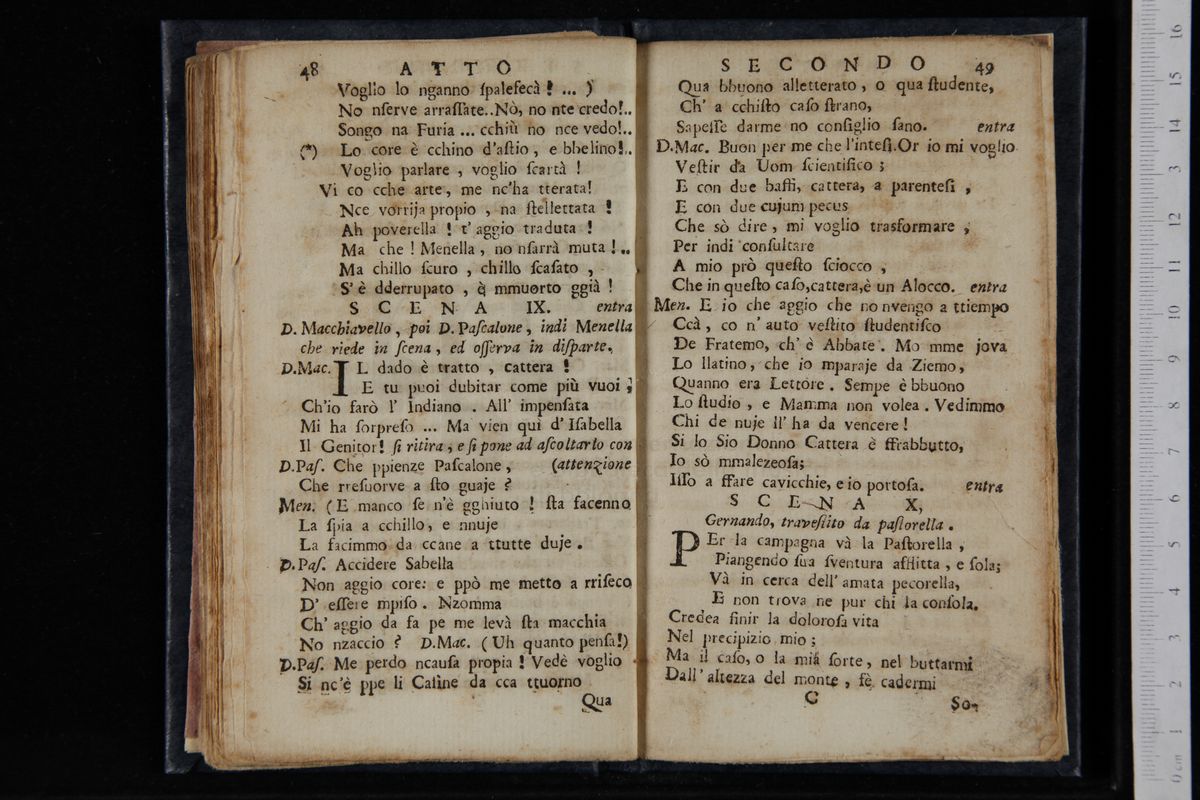 48 ATTO
Voglio lo nganno ſpalefecà ! ... )
No nſerve arraſſate..Nò, no nte credo!..
Songo na Furia ... cchiù no nce vedo!..
(*) Lo core è cchino d'aſtio, e bbelino!..
Voglio parlare, voglio ſcartà !
Vi co cche arte, me nc'ha tterata!
Nce vorrija propio, na ſtellettata !
Ah poverella ! t' aggio traduta !
Ma che ! Menella, no nſarrà muta ! ..
Ma chillo ſcuro, chillo ſcaſato,
S' è dderrupato, q̀ mmuorto ggià !
SCENA IX. entra
D. Macchiavello, poi D. Paſcalone, indi Menella
che riede in ſcena, ed oſſerva in diſparte.
D.Mac. IL dado è tratto, cattera !
E tu puoi dubitar come più vuoi;
Ch'io farò l' Indiano. All' impenſata
Mi ha ſorpreſo ... Ma vien qui d' Iſabella
Il Genitor! ſi ritira, e ſi pone ad aſcoltarlo con
D.Paſ. Che ppienze Paſcalone, (attenzione
Che rreſuorve a ſto guaje ?
Men. ( E manco ſe n'è gghiuto ! ſta facenno
La ſpia a cchillo, e nnuje
La facimmo da ccane a ttutte duje.
D.Paſ. Accidere Sabella
Non aggio core: e ppò me metto a rriſeco
D' eſſere mpiſo. Nzomma
Ch' aggio da fa pe me levà ſta macchia
No nzaccio ? D.Mac. ( Uh quanto penſa!)
D.Paſ. Me perdo ncauſa propia ! Vedè voglio
Si nc'è ppe li Caſine da cca ttuorno
Qua
SECONDO 49
Qua bbuono alletterato, o qua ſtudente,
Ch' a cchiſto caſo ſtrano,
Sapeſſe darme no conſiglio ſano. entra
D.Mac. Buon per me che l'inteſi.Or io mi voglio
Veſtir da Uom ſcientifico ;
E con due baffi, cattera, a parenteſi,
E con due cujum pecus
Che sò dire, mi voglio trasformare,
Per indi conſultare
A mio prò queſto ſciocco,
Che in queſto caſo,cattera,è un Alocco. entra
Men. E io che aggio che no nvengo a ttiempo
Ccà, co n' auto veſtito ſtudentiſco
De Fratemo, ch' è Abbate. Mo mme jova
Lo llatino, che io mparaje da Ziemo,
Quanno era Lettore. Sempe è bbuono
Lo ſtudio, e Mamma non volea. Vedimmo
Chi de nuje ll' ha da vencere !
Si lo Sio Donno Cattera è ffrabbutto,
Io sò mmalezeoſa;
Iſſo a ffare cavicchie, e io portoſa. entra
SCENA X,
Gernando, traveſtito da paſtorella.
PEr la campagna và la Paſtorella,
Piangendo ſua ſventura afflitta, e ſola;
Và in cerca dell' amata pecorella,
E non trova ne pur chi la conſola.
Credea finir la doloroſa vita
Nel precipizio mio ;
Ma il caſo, o la mia ſorte, nel buttarmi
Dall' altezza del monte, fè cadermi
C So-